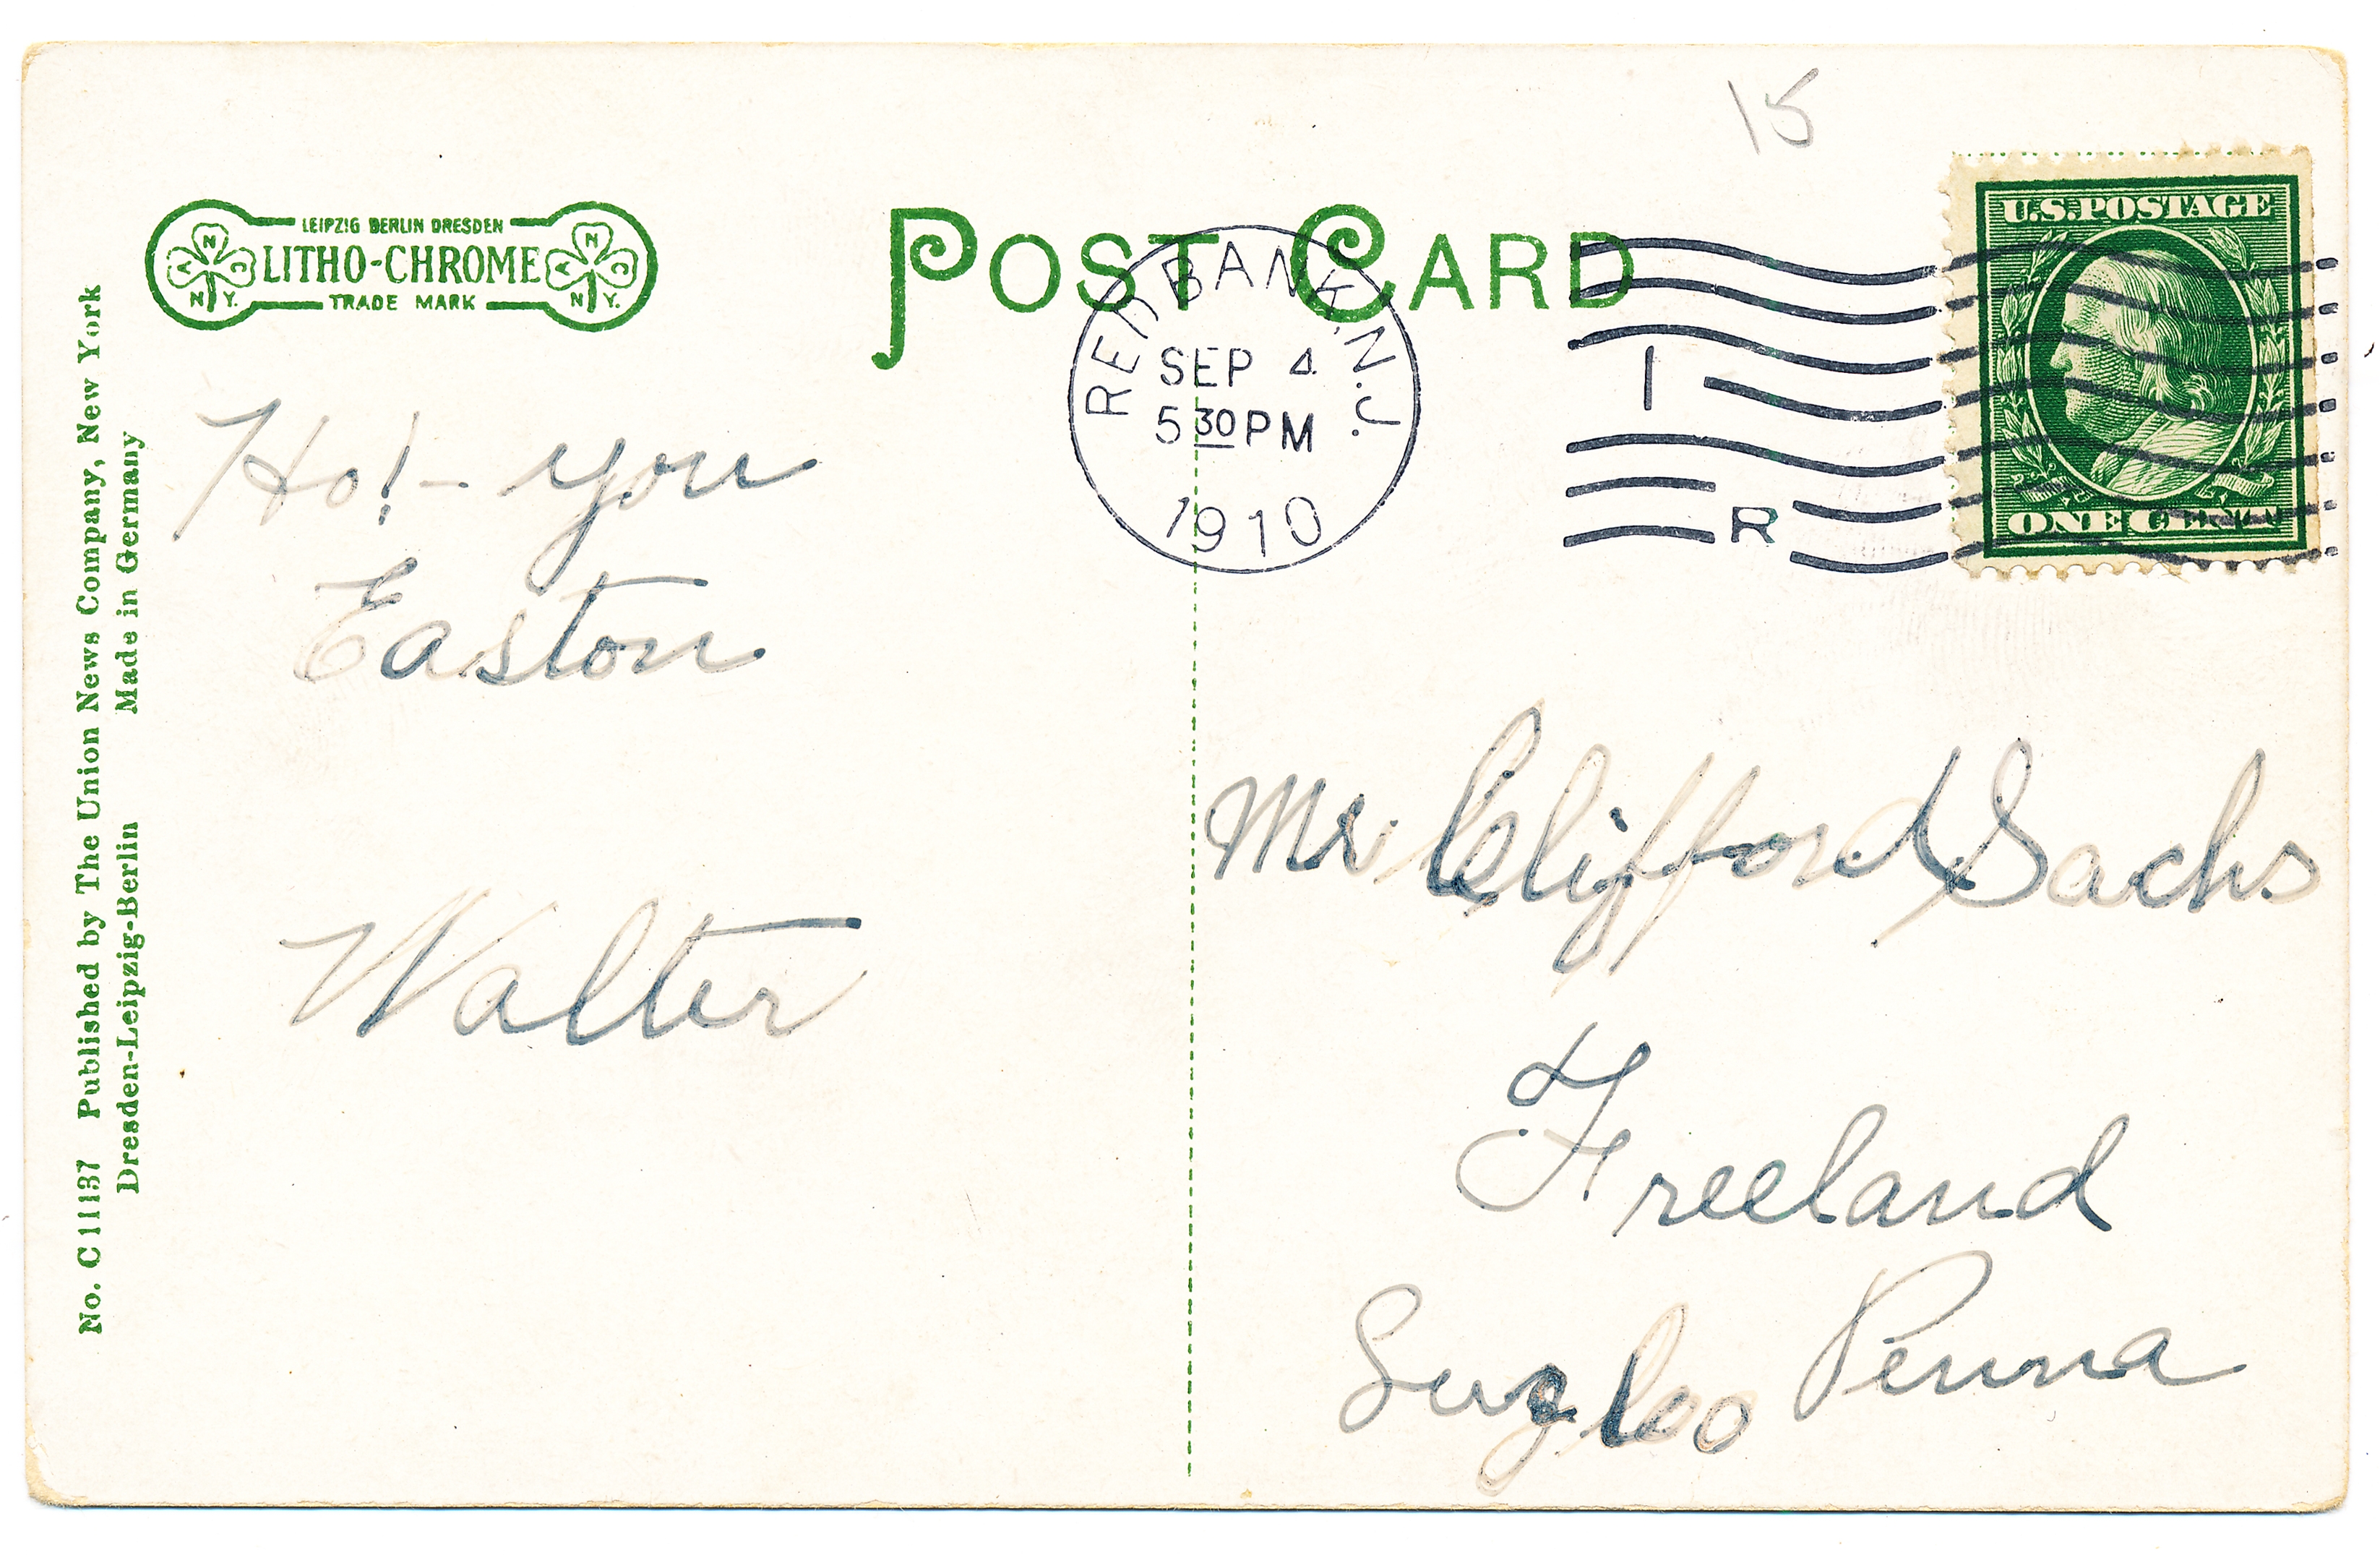 15
LEIPZIG BERLIN DRESDEN
LITHO-CHROME
TRADE MARK
A N C
N.Y.
A N C
N.Y.
POST CARD
RED BANK, N.J.
SEP 4
5 30 PM
1910
1
R
U.S. POSTAGE
ONE CENT
No. C11137 Published by The Union News Company, New York
Dresden-Leipzig-Berlin Made in Germany
Ho! - you
Easton
Walter
Mr Clifford Sachs
Freeland
Penna